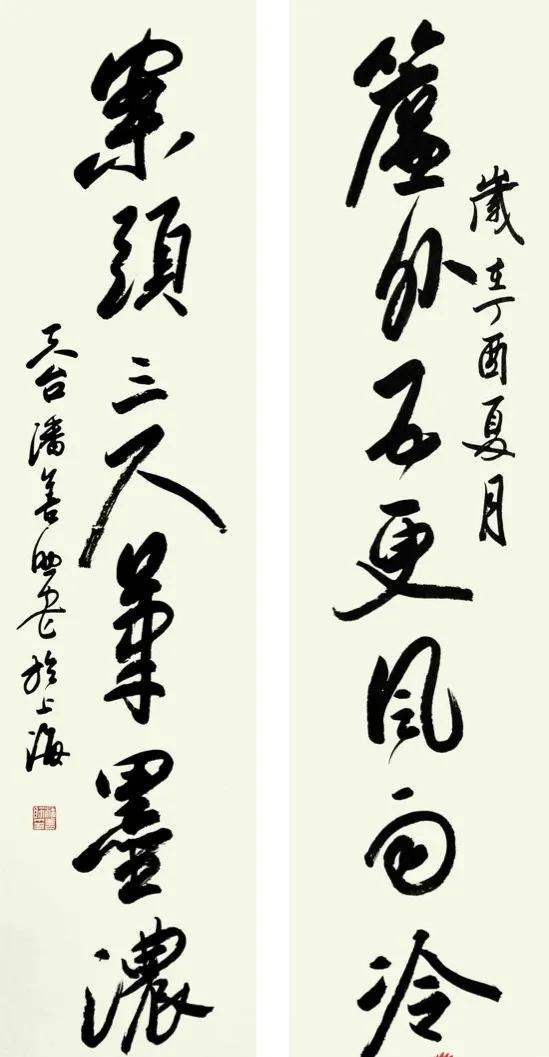 歲在丁酉夏月
簾外五更風雨冷
案頭三尺筆墨濃
天台潘善助書於上海